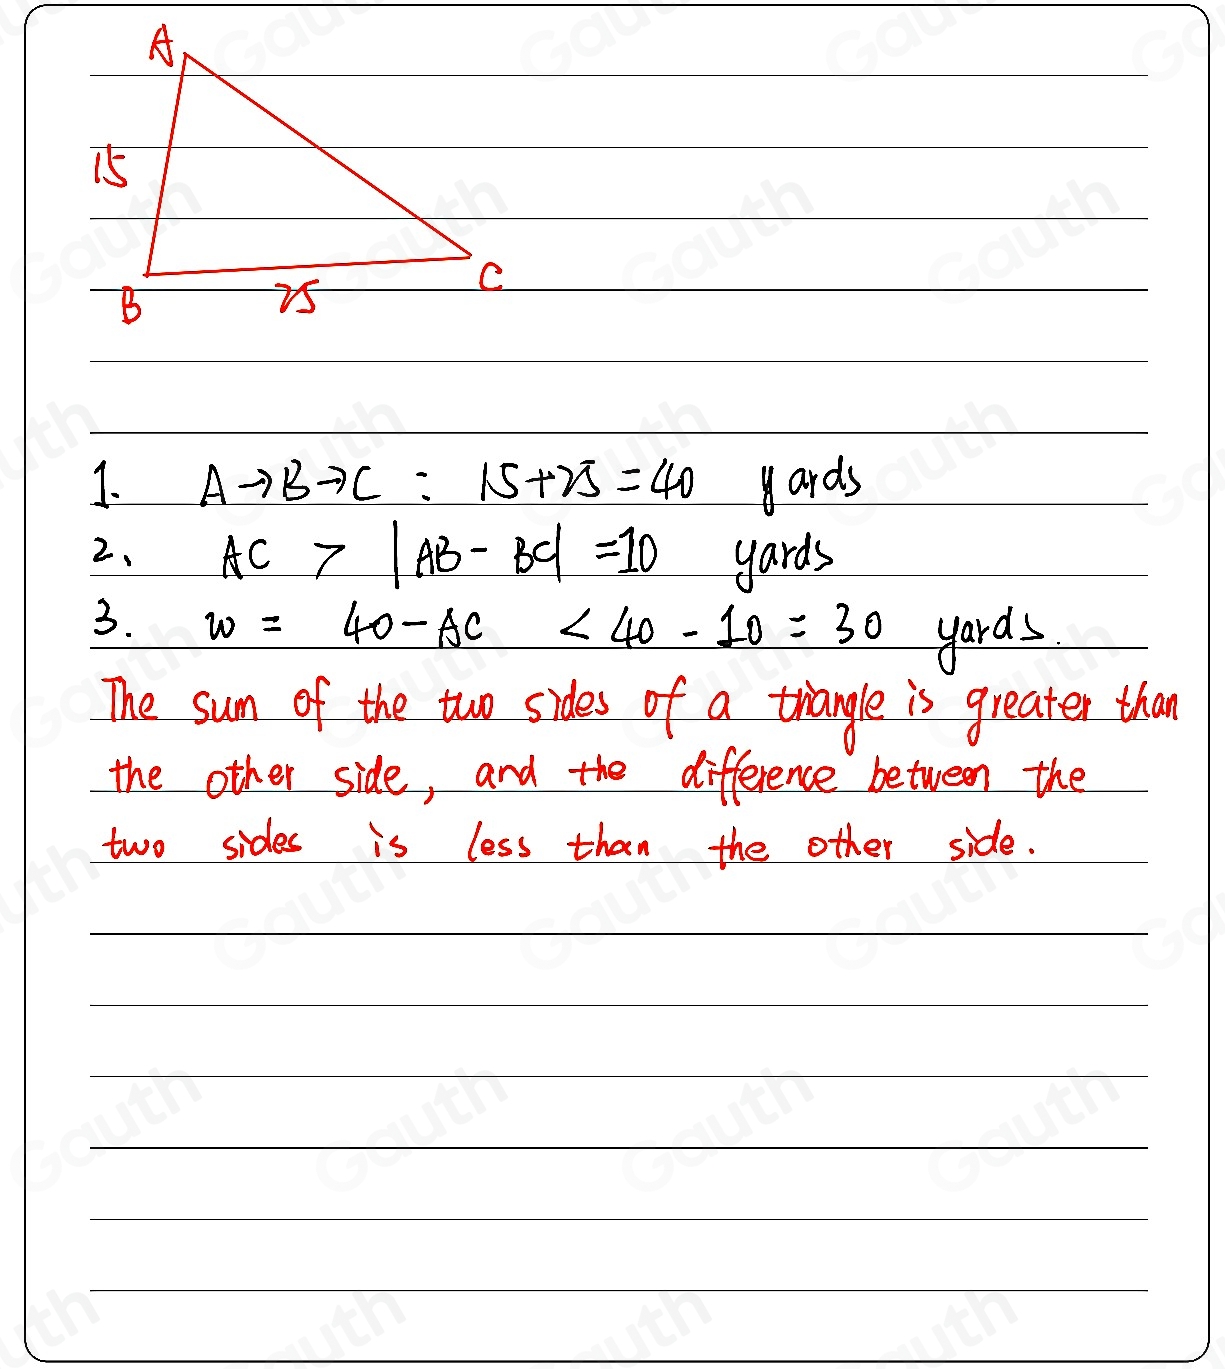 A
15
B
25
C
1. A→B→C : 15+25=40 yards
2. AC > |AB-BC| =10 yards
3. w = 40-AC < 40-10=30 yards.
The sum of the two sides of a triangle is greater than
the other side, and the difference between the
two sides is less than the other side.